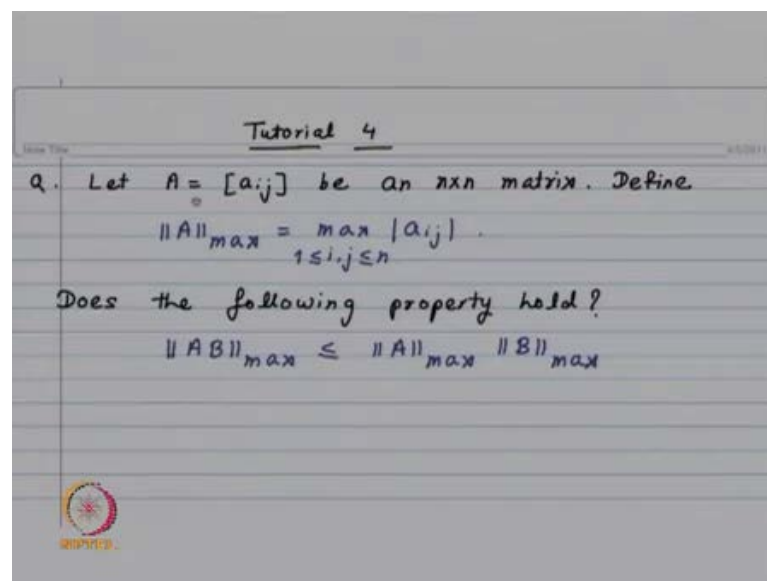 Tutorial 4
Q. Let A = [aij] be an nxn matrix. Define
||A||max = max |aij| .
1≤i,j≤n
Does the following property hold?
||AB||max ≤ ||A||max ||B||max
NPTEL